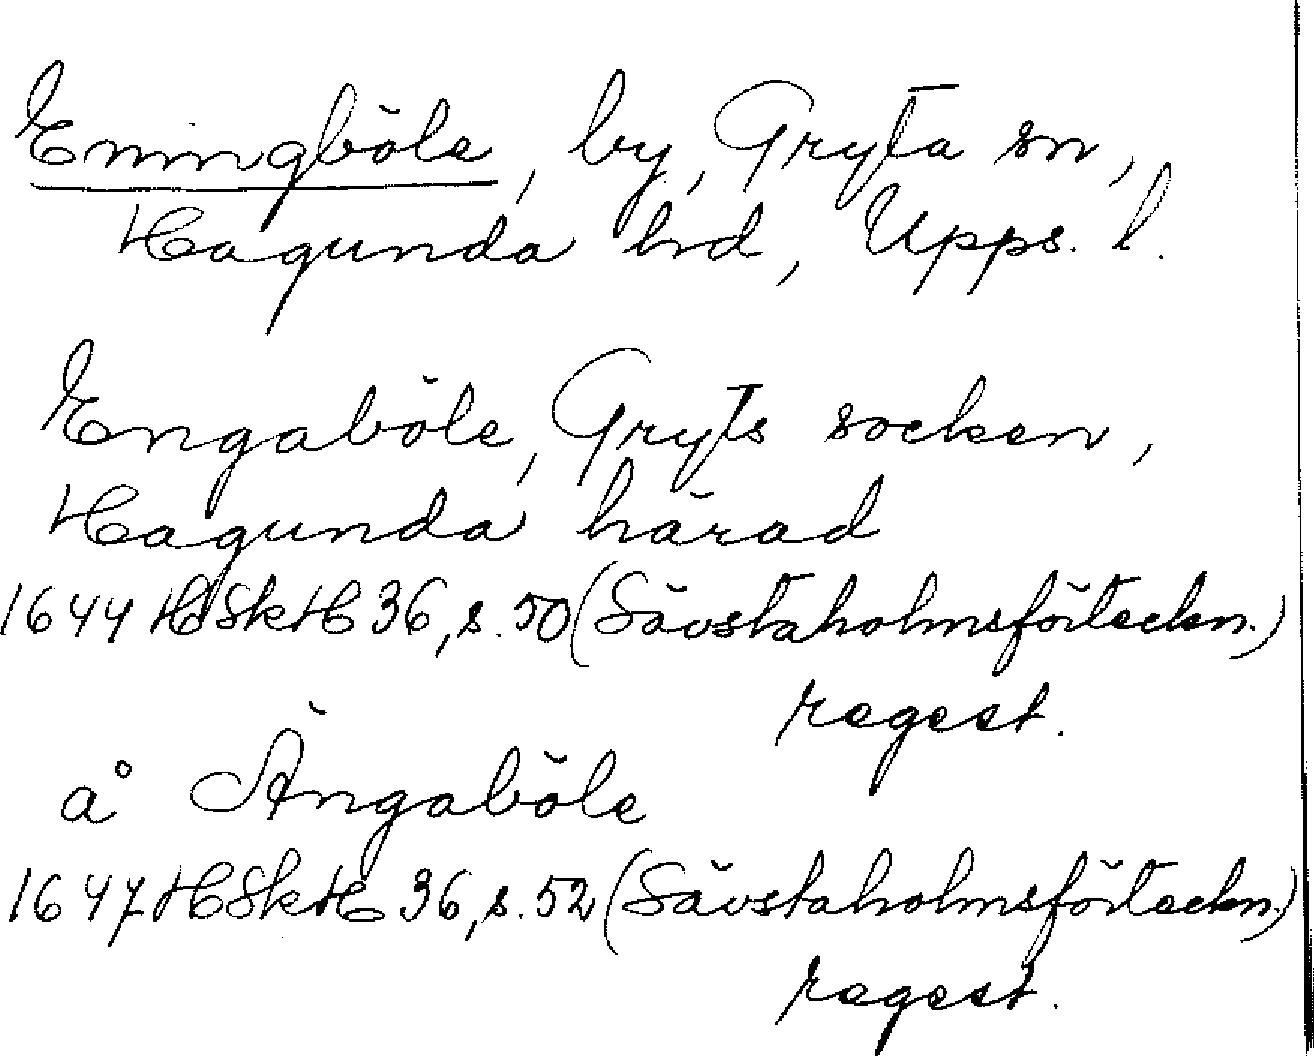 Eningböle, by, Gryta sn,
Hagunda hd, Upps. l.
Engaböle, Gryts socken,
Hagunda härad
1644 HSkH 36, s. 50 (Sävstaholmsförteckn.)
regest.
å Ängaböle
1647 HSkH 36, s. 52 (Sävstaholmsförteckn.)
regest.